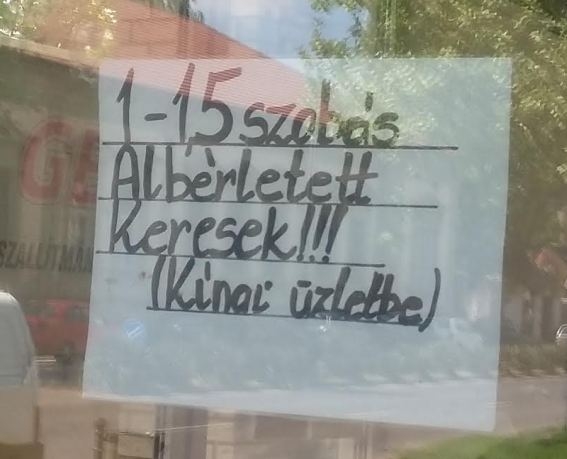 1-1,5 szobás
Albèrletett
Keresek!!!
(Kinai üzletbe)
SZÁLLÍTMÁN